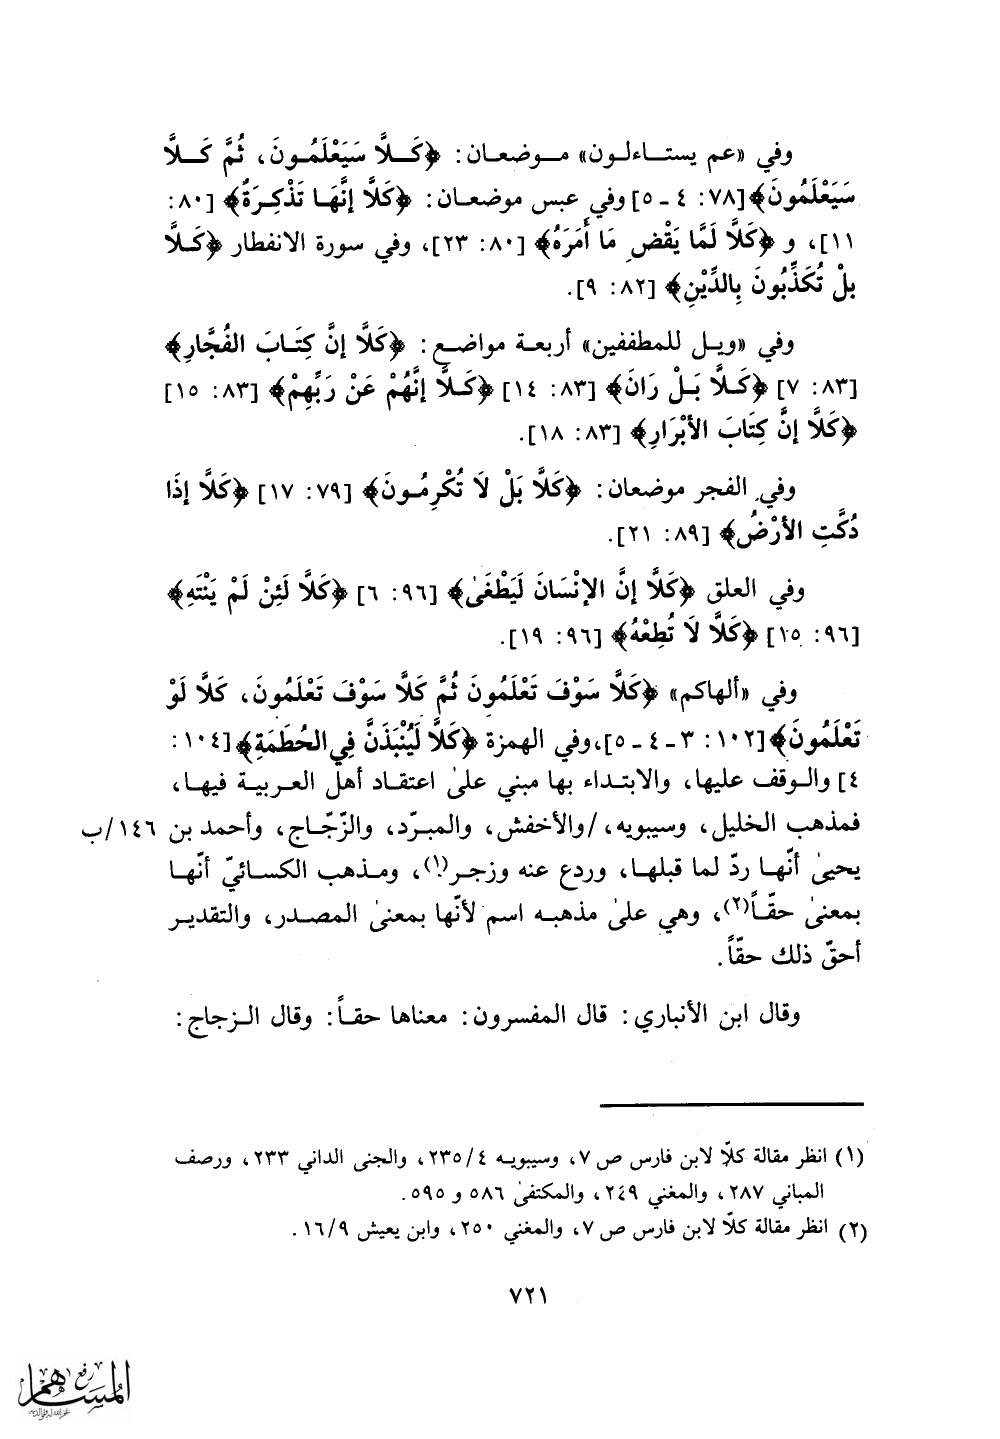 وفي «عم يستاءلون» موضعان: ﴿كَلَّا سَيَعْلَمُونَ، ثُمَّ كَلَّا
سَيَعْلَمُونَ﴾ [٧٨: ٤ ـ ٥] وفي عبس موضعان: ﴿كَلَّا إنَّهَا تَذْكِرَةٌ﴾ [٨٠:
١١]، و ﴿كَلَّا لَمَّا يَقْضِ مَا أَمَرَهُ﴾ [٨٠: ٢٣]، وفي سورة الانفطار ﴿كَلَّا
بلْ تُكَذِّبُونَ بِالدِّيْنِ﴾ [٨٢: ٩].
وفي «ويل للمطففين» أربعة مواضع: ﴿كَلَّا إنَّ كِتَابَ الفُجَّارِ﴾
[٨٣: ٧] ﴿كَلَّا بَلْ رَانَ﴾ [٨٣: ١٤] ﴿كَلَّا إنَّهُمْ عَنْ رَبِّهِمْ﴾ [٨٣: ١٥]
﴿كَلَّا إنَّ كِتَابَ الأَبْرَارِ﴾ [٨٣: ١٨].
وفي الفجر موضعان: ﴿كَلَّا بَلْ لَا تُكْرِمُونَ﴾ [٧٩: ١٧] ﴿كَلَّا إذَا
دُكَّتِ الأَرْضُ﴾ [٨٩: ٢١].
وفي العلق ﴿كَلَّا إنَّ الإنْسَانَ لَيَطْغَىٰ﴾ [٩٦: ٦] ﴿كَلَّا لَئِنْ لَمْ يَنْتَهِ﴾
[٩٦: ١٥] ﴿كَلَّا لَا تُطِعْهُ﴾ [٩٦: ١٩].
وفي «ألهاكم» ﴿كَلَّا سَوْفَ تَعْلَمُونَ ثُمَّ كَلَّا سَوْفَ تَعْلَمُونَ، كَلَّا لَوْ
تَعْلَمُونَ﴾ [١٠٢: ٣ ـ ٤ ـ ٥]، وفي الهمزة ﴿كَلَّا لَيُنْبَذَنَّ فِي الحُطَمَةِ﴾ [١٠٤:
٤] والوقف عليها، والابتداء بها مبني علىٰ اعتقاد أهل العربية فيها،
فمذهب الخليل، وسيبويه، /والأخفش، والمبرّد، والزّجّاج، وأحمد بن ١٤٦/ب
يحيىٰ أنّها ردّ لما قبلها، وردع عنه وزجر(١)، ومذهب الكسائيّ أنّها
بمعنىٰ حقّاً(٢)، وهي علىٰ مذهبه اسم لأنّها بمعنىٰ المصدر، والتقدير
أحقّ ذلك حقّاً.
وقال ابن الأنباري: قال المفسرون: معناها حقاً: وقال الزجاج:
(١) انظر مقالة كلّا لابن فارس ص ٧، وسيبويه ٤/ ٢٣٥، والجنى الداني ٢٣٣، ورصف
المباني ٢٨٧، والمغني ٢٤٩، والمكتفىٰ ٥٨٦ و ٥٩٥.
(٢) انظر مقالة كلّا لابن فارس ص ٧، والمغني ٢٥٠، وابن يعيش ٩/ ١٦.
٧٢١
رفع
المساهم